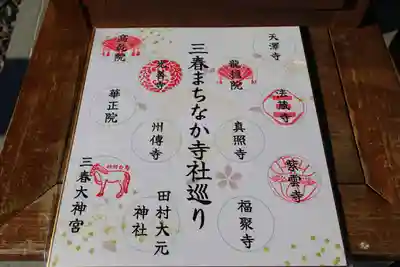 天澤寺
法蔵寺
紫雲寺
龍穏院
真照寺
福聚寺
三春まちなか寺社巡り
光善寺
州傳寺
田村大元
神社
高乾院
華正院
三春大神宮